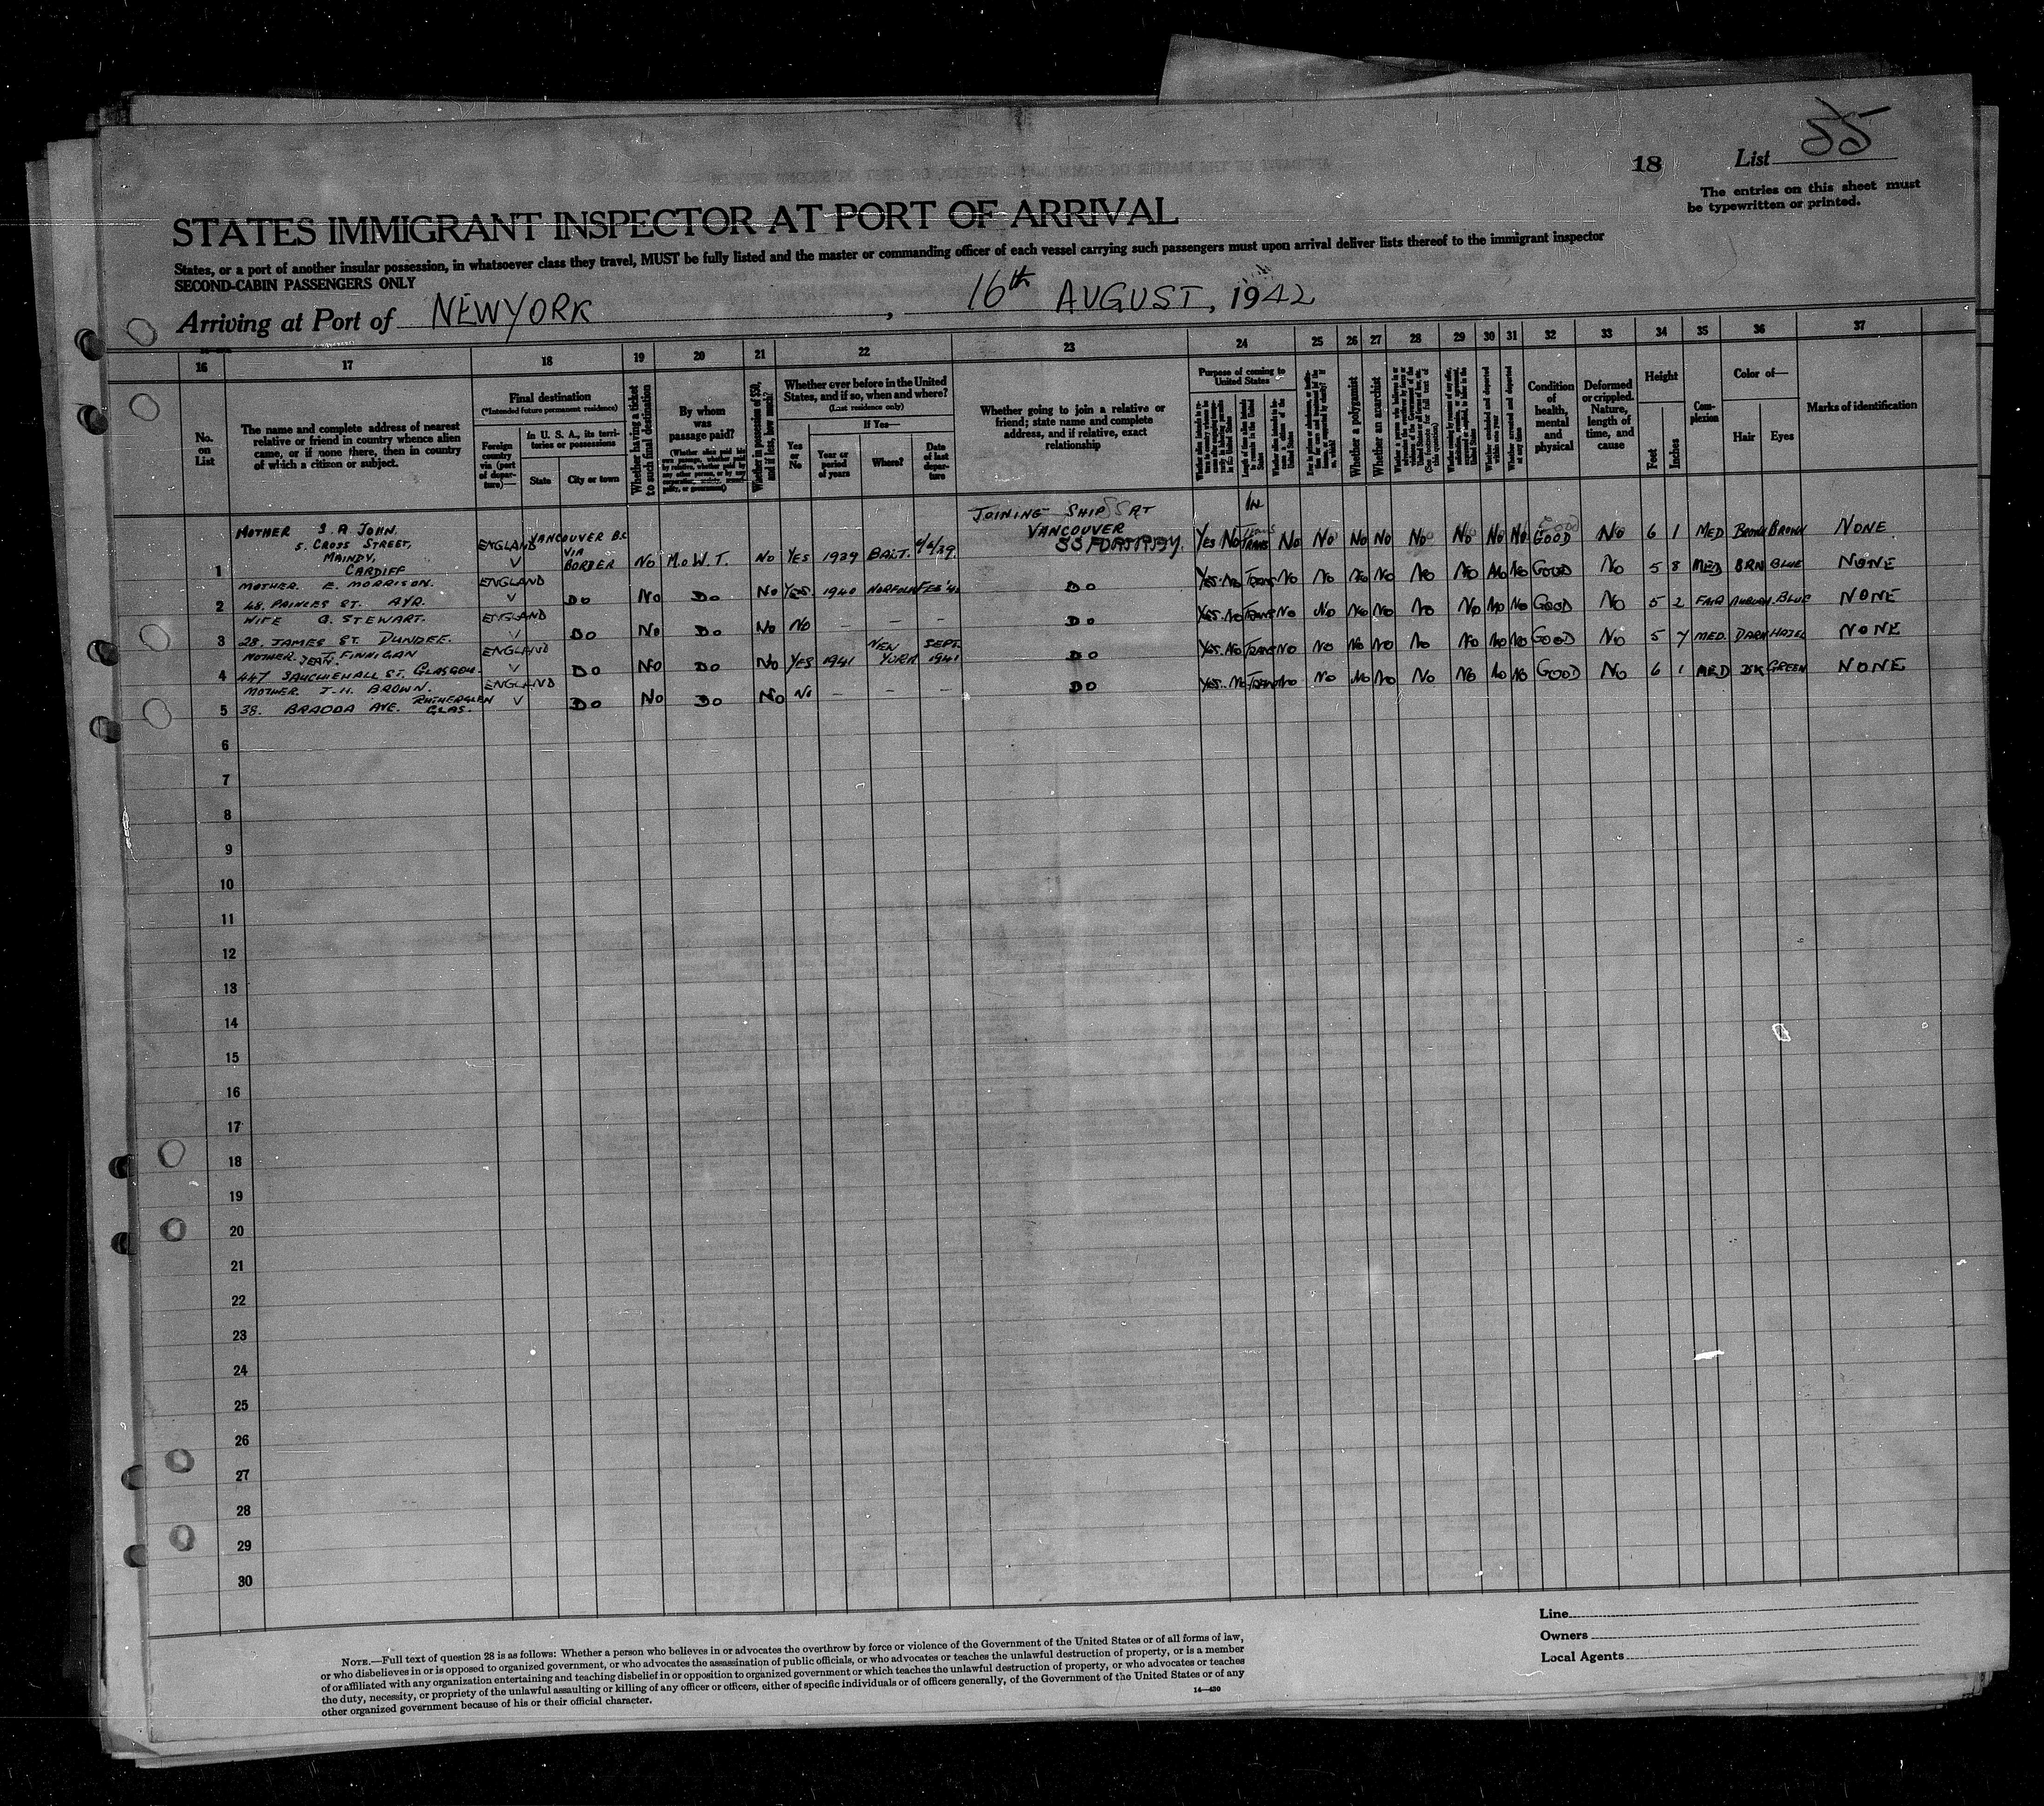 18 List 55
The entries on this sheet must
be typewritten or printed.
STATES IMMIGRANT INSPECTOR AT PORT OF ARRIVAL
States, or a port of another insular possession, in whatsoever class they travel, MUST be fully listed and the master or commanding officer of each vessel carrying such passengers must upon arrival deliver lists thereof to the immigrant inspector
SECOND-CABIN PASSENGERS ONLY
Arriving at Port of NEW YORK, 16th AUGUST, 1942
16 17 18 19 20 21 22 23 24 25 26 27 28 29 30 31 32 33 34 35 36 37
No. on List
The name and complete address of nearest
relative or friend in country whence alien
came, or if none there, then in country
of which a citizen or subject.
Final destination
(*Intended future permanent residence)
Foreign country via (port of departure)—
in U. S. A., its territories or possessions
State
City or town
Whether having a ticket to such final destination
By whom was passage paid?
Whether in possession of $50, and if less, how much?
Whether ever before in the United
States, and if so, when and where?
(Last residence only)
Yes or No
If Yes—
Year or period of years
Where?
Date of last departure
Whether going to join a relative or
friend; state name and complete
address, and if relative, exact
relationship
Purpose of coming to United States
Whether a polygamist
Whether an anarchist
Condition of health, mental and physical
Deformed or crippled. Nature, length of time, and cause
Height
Feet
Inches
Complexion
Color of—
Hair
Eyes
Marks of identification
JOINING SHIP SS AT
VANCOUVER
IN
MOTHER S. A JOHN.
5. CROSS STREET,
MAINDY,
CARDIFF
1 ENGLAND VANCOUVER B.C VIA BORDER NO M.O W. T. NO YES 1939 BALT. YES NO TRANS NO NO NO NO NO NO NO NO GOOD NO 6 1 MED BROWN BROWN NONE
MOTHER. E. MORRISON.
2 48. PRINCES ST. AYR. ENGLAND DO NO DO NO YES. 1940 NORFOLK FEB DO YES. NO TRANS NO NO NO NO NO NO NO NO GOOD NO 5 8 MED BRN BLUE NONE
WIFE G. STEWART.
3 28. JAMES ST. DUNDEE. ENGLAND DO NO DO NO NO – – – DO YES. NO TRANS NO NO NO NO NO NO NO NO GOOD NO 5 2 FAIR AUBURN. BLUE NONE
MOTHER. JEAN FINNIGAN
4 447 SAUCHIEHALL ST. GLASGOW. ENGLAND DO NO DO NO YES 1941 NEW YORK SEPT. 1941 DO YES. NO TRANS NO NO NO NO NO NO NO NO GOOD NO 5 7 MED. DARK HAZEL NONE
MOTHER J. H. BROWN.
5 38. AVE. RUTHERGLEN GLAS. ENGLAND DO NO DO NO NO – – – DO YES. NO TRANS NO NO NO NO NO NO NO NO GOOD NO 6 1 MED DK GREEN NONE
6
7
8
9
10
11
12
13
14
15
16
17
18
19
20
21
22
23
24
25
26
27
28
29
30
Line
Owners
Local Agents
NOTE.—Full text of question 28 is as follows: Whether a person who believes in or advocates the overthrow by force or violence of the Government of the United States or of all forms of law,
or who disbelieves in or is opposed to organized government, or who advocates the assassination of public officials, or who advocates or teaches the unlawful destruction of property, or is a member
of or affiliated with any organization entertaining and teaching disbelief in or opposition to organized government or which teaches the unlawful destruction of property, or who advocates or teaches
the duty, necessity, or propriety of the unlawful assaulting or killing of any officer or officers, either of specific individuals or of officers generally, of the Government of the United States or of any
other organized government because of his or their official character.
14—430